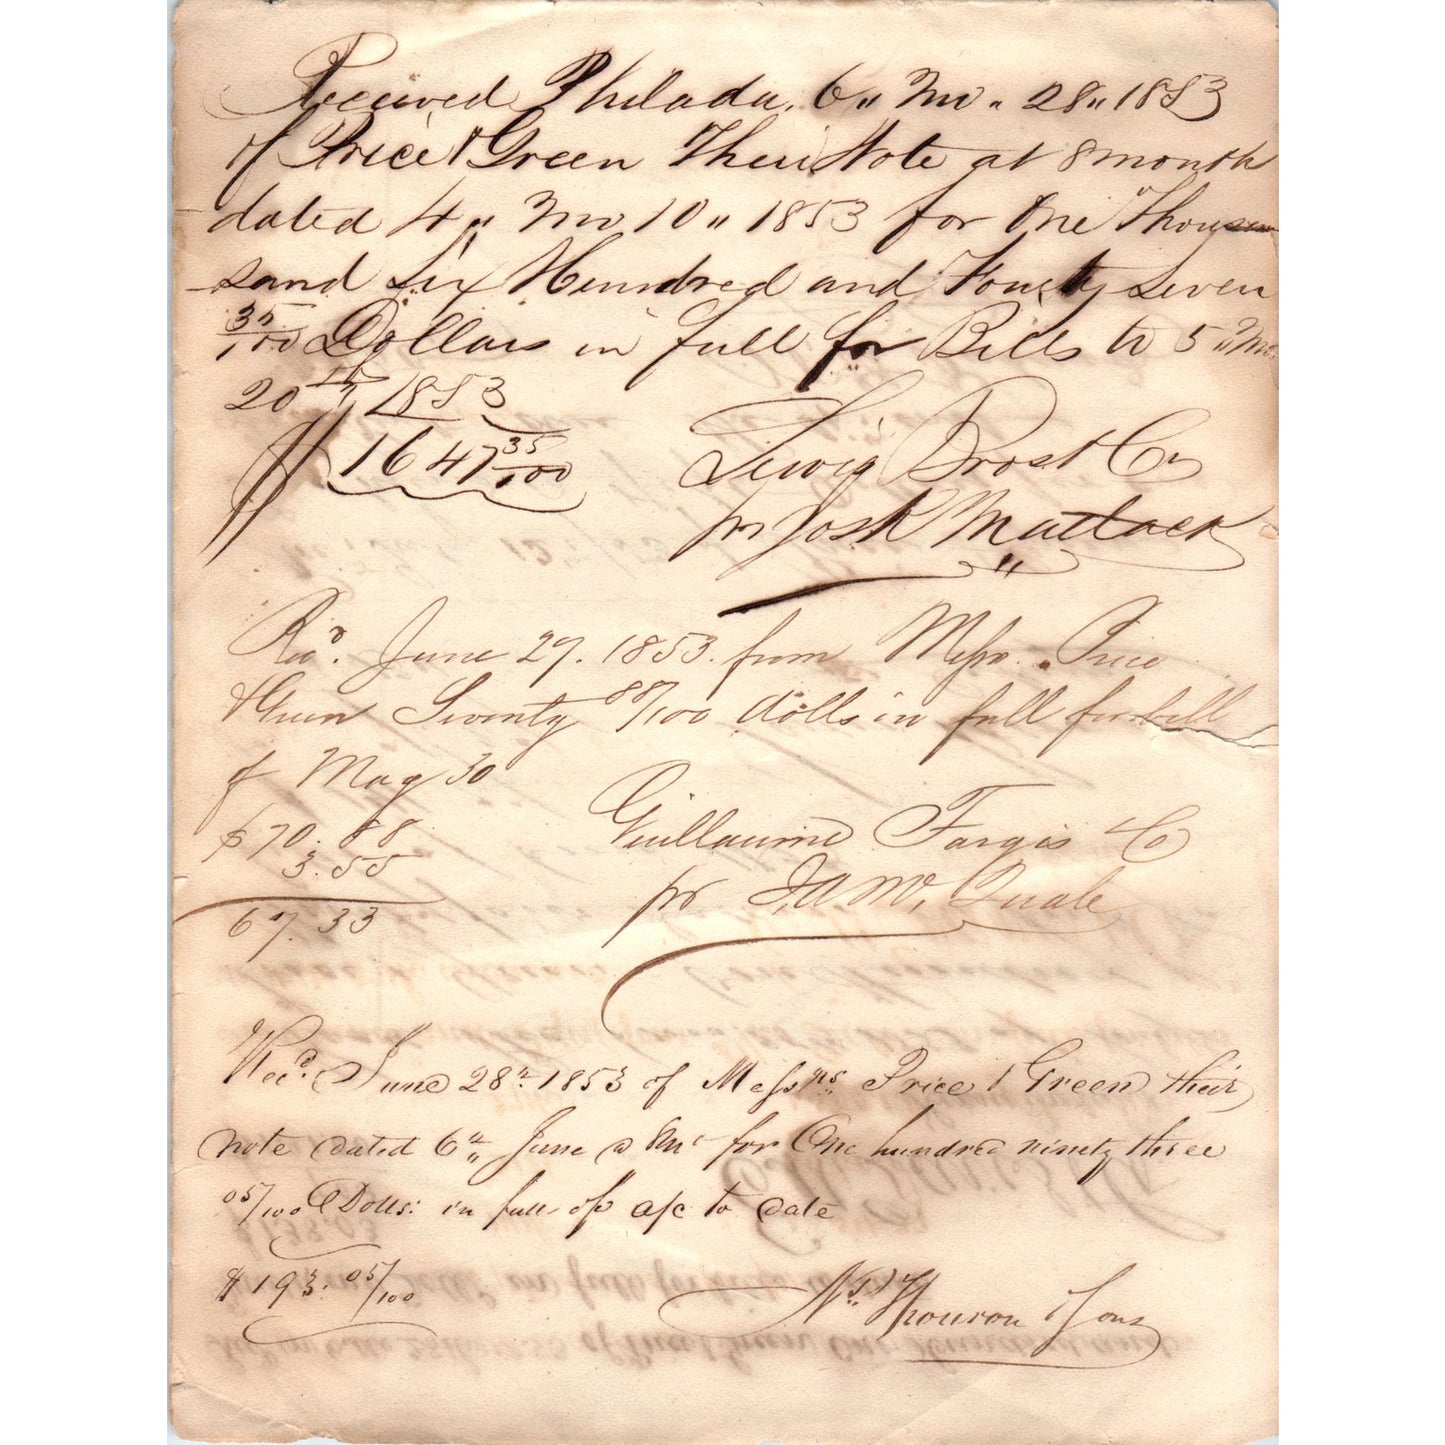 Received Philada. 6" Mo. 28" 1853
of Price & Green Their Note at 8 month
dated 4" Mo 10" 1853 for One Thou
sand Six Hundred and Fourty Seven
35/100 Dollars in full for Bills to 5" Mo.
20th 1853
$1647 35/100
Lewis Brost & Co
pr Josh Matlack
Recd. June 29. 1853. from Messrs. Price
& Green Seventy 88/100 dolls in full for bill
of May 30
$70.88
3.55
67.33
Guillaume Fargis & Co
pr J. A McQuale
Recd. June 28th 1853 of Messrs Price & Green their
note dated 6th June @ 8 mo for One hundred ninety three
05/100 Dolls: in full of a/c to date
$193. 05/100
& Sons